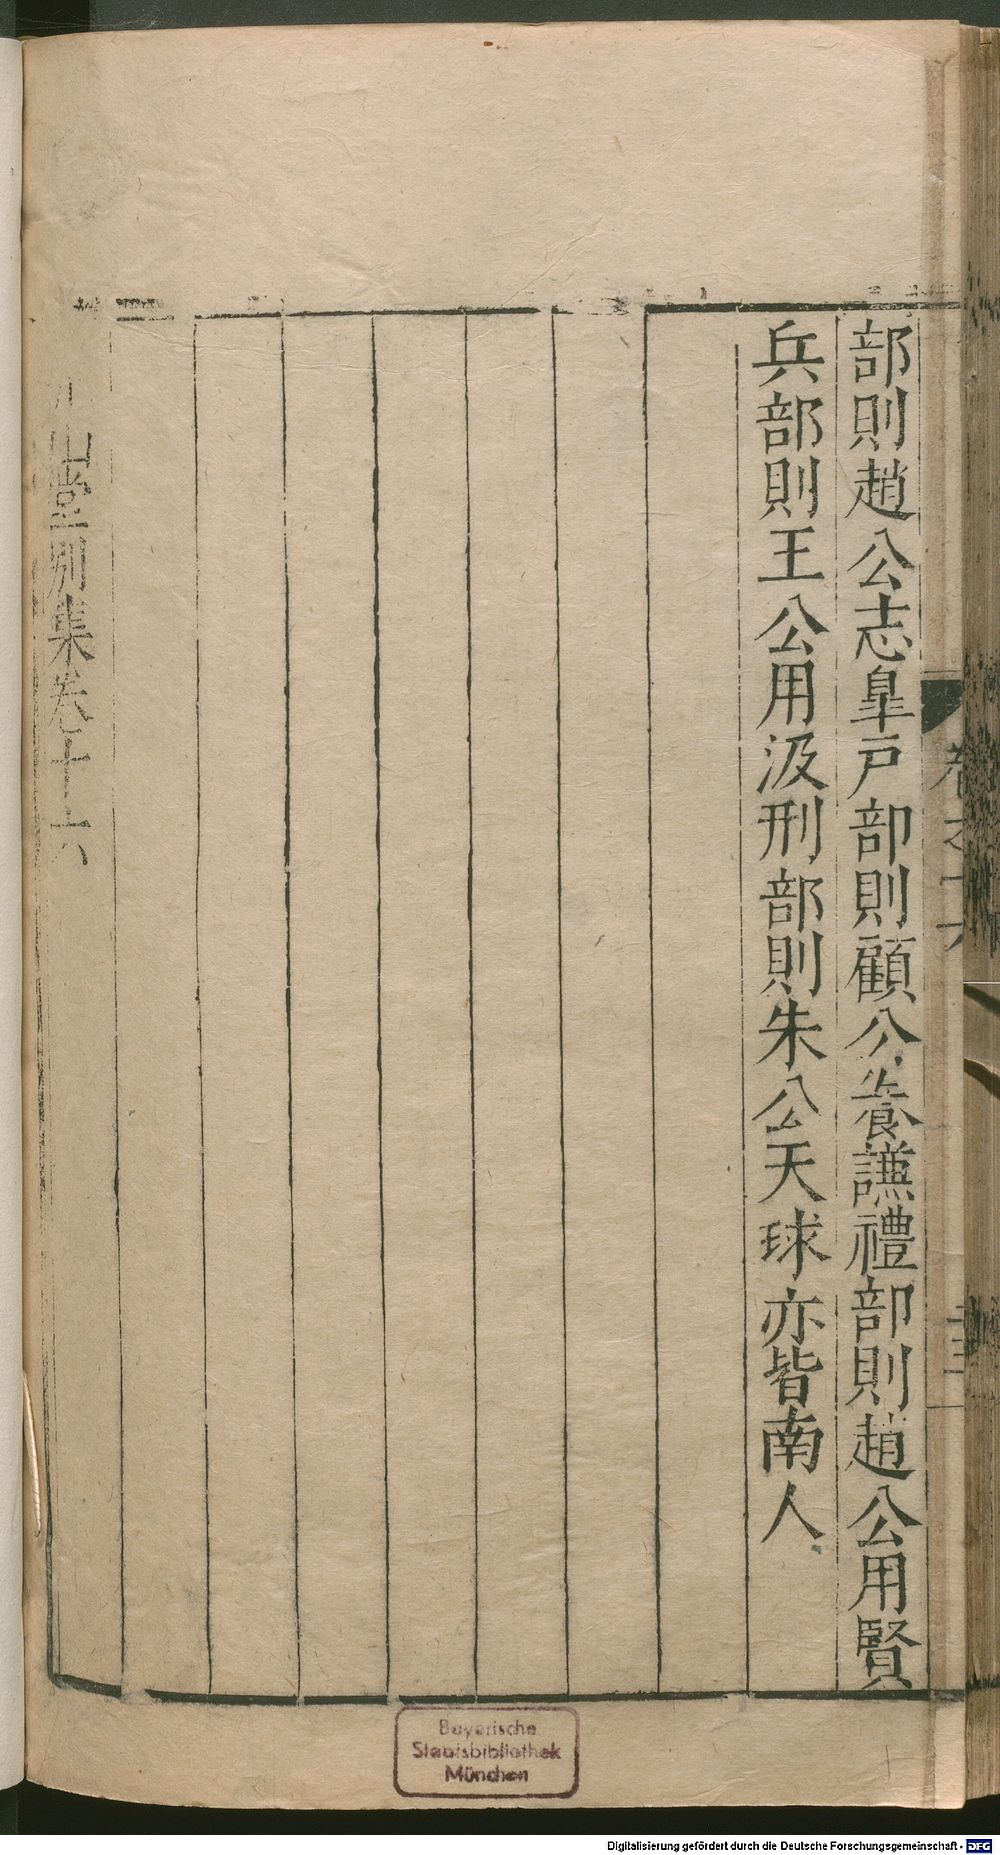 卷之十六
二十三
部則趙公志皐戶部則顧公養謙禮部則趙公用賢
兵部則王公用汲刑部則朱公天球亦皆南人
山堂別集卷十六
Bayerische
Staatsbibliothek
München
Digitalisierung gefördert durch die Deutsche Forschungsgemeinschaft - DFG